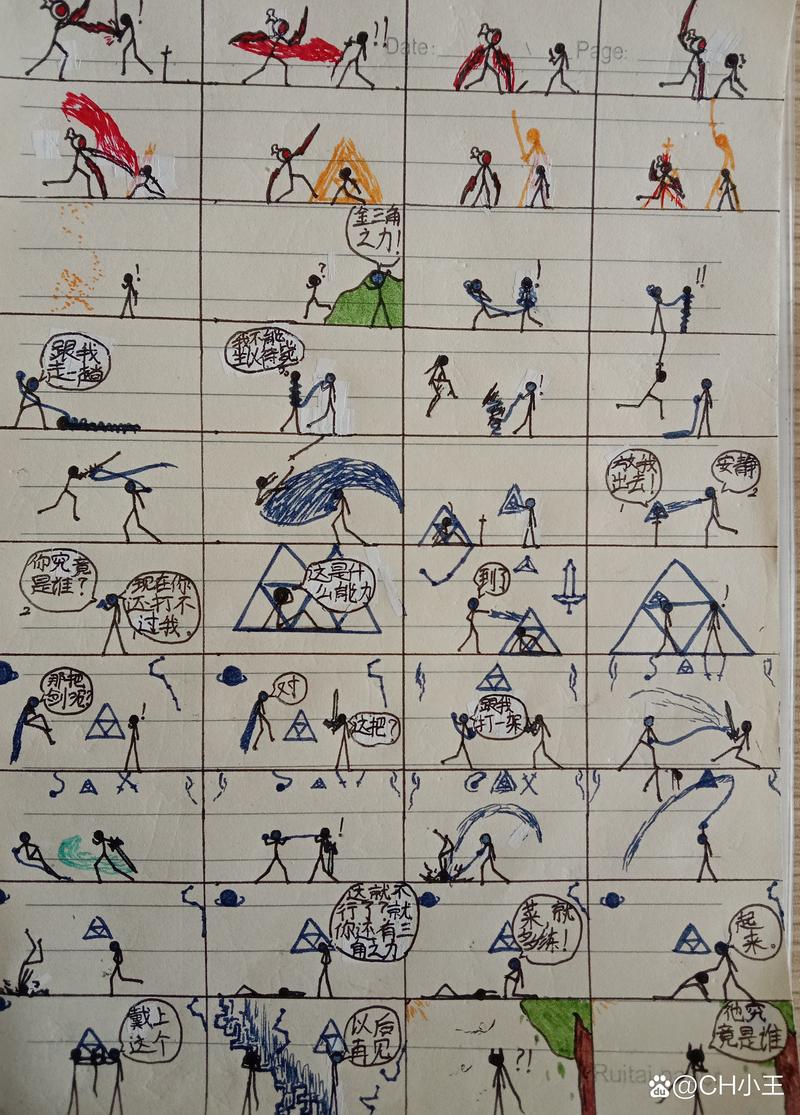 !
!!
Date:
Page:
!
金三角
之力!
?
!
!!
跟我
走一趟
我不能
坐以待毙
。
!
放我
出去!
1
安静
2
你究竟
是谁?
2
现在你
还打不
过我。
这是什
么能力
到了
!
那把
剑呢?
!
对
这把?
跟我
打一架
!
这就不
行了?就
你还有三
角之力
菜,就
多练!
起
来。
戴上
这个
以后
再见
?!
他究
竟是谁
Ruitai
@CH小王